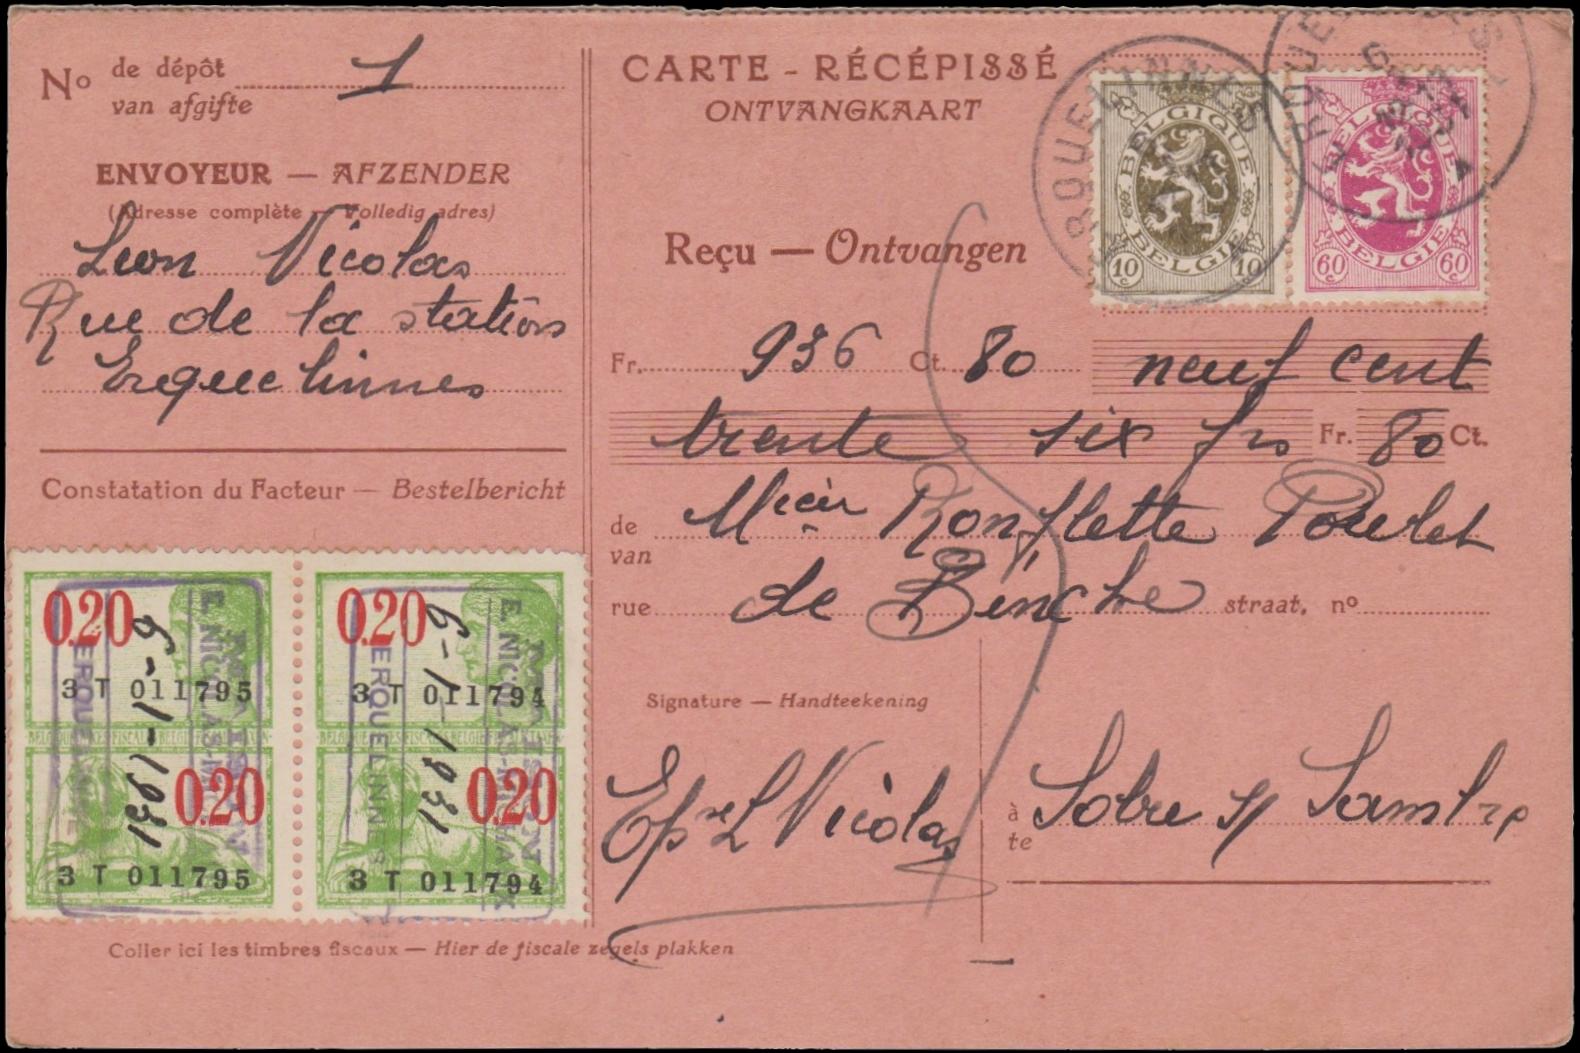 No de dépôt 1
van afgifte
ENVOYEUR — AFZENDER
(Adresse complète — Volledig adres)
Leon Nicolas
Rue de la station
Erquelinnes
Constatation du Facteur — Bestelbericht
0.20
0.20
3 T 011795
3 T 011794
0.20
0.20
3 T 011795
3 T 011794
6-1-1931
6-1-1931
E. NICOLAS-
ERQUELINNES
Coller ici les timbres fiscaux — Hier de fiscale zegels plakken
CARTE - RÉCÉPISSÉ
ONTVANGKAART
ERQUELINNES
BELGIQUE
BELGIE
10 c 10 c
BELGIQUE
BELGIE
60 c 60 c
Reçu — Ontvangen
Fr. 936 Ct. 80 neuf cent
trente six frs Fr. 80 Ct.
de Ronflette Poulet
van
rue de Binche straat, no
Signature — Handteekening
L Nicolas
à Solre s/ Sambre
te